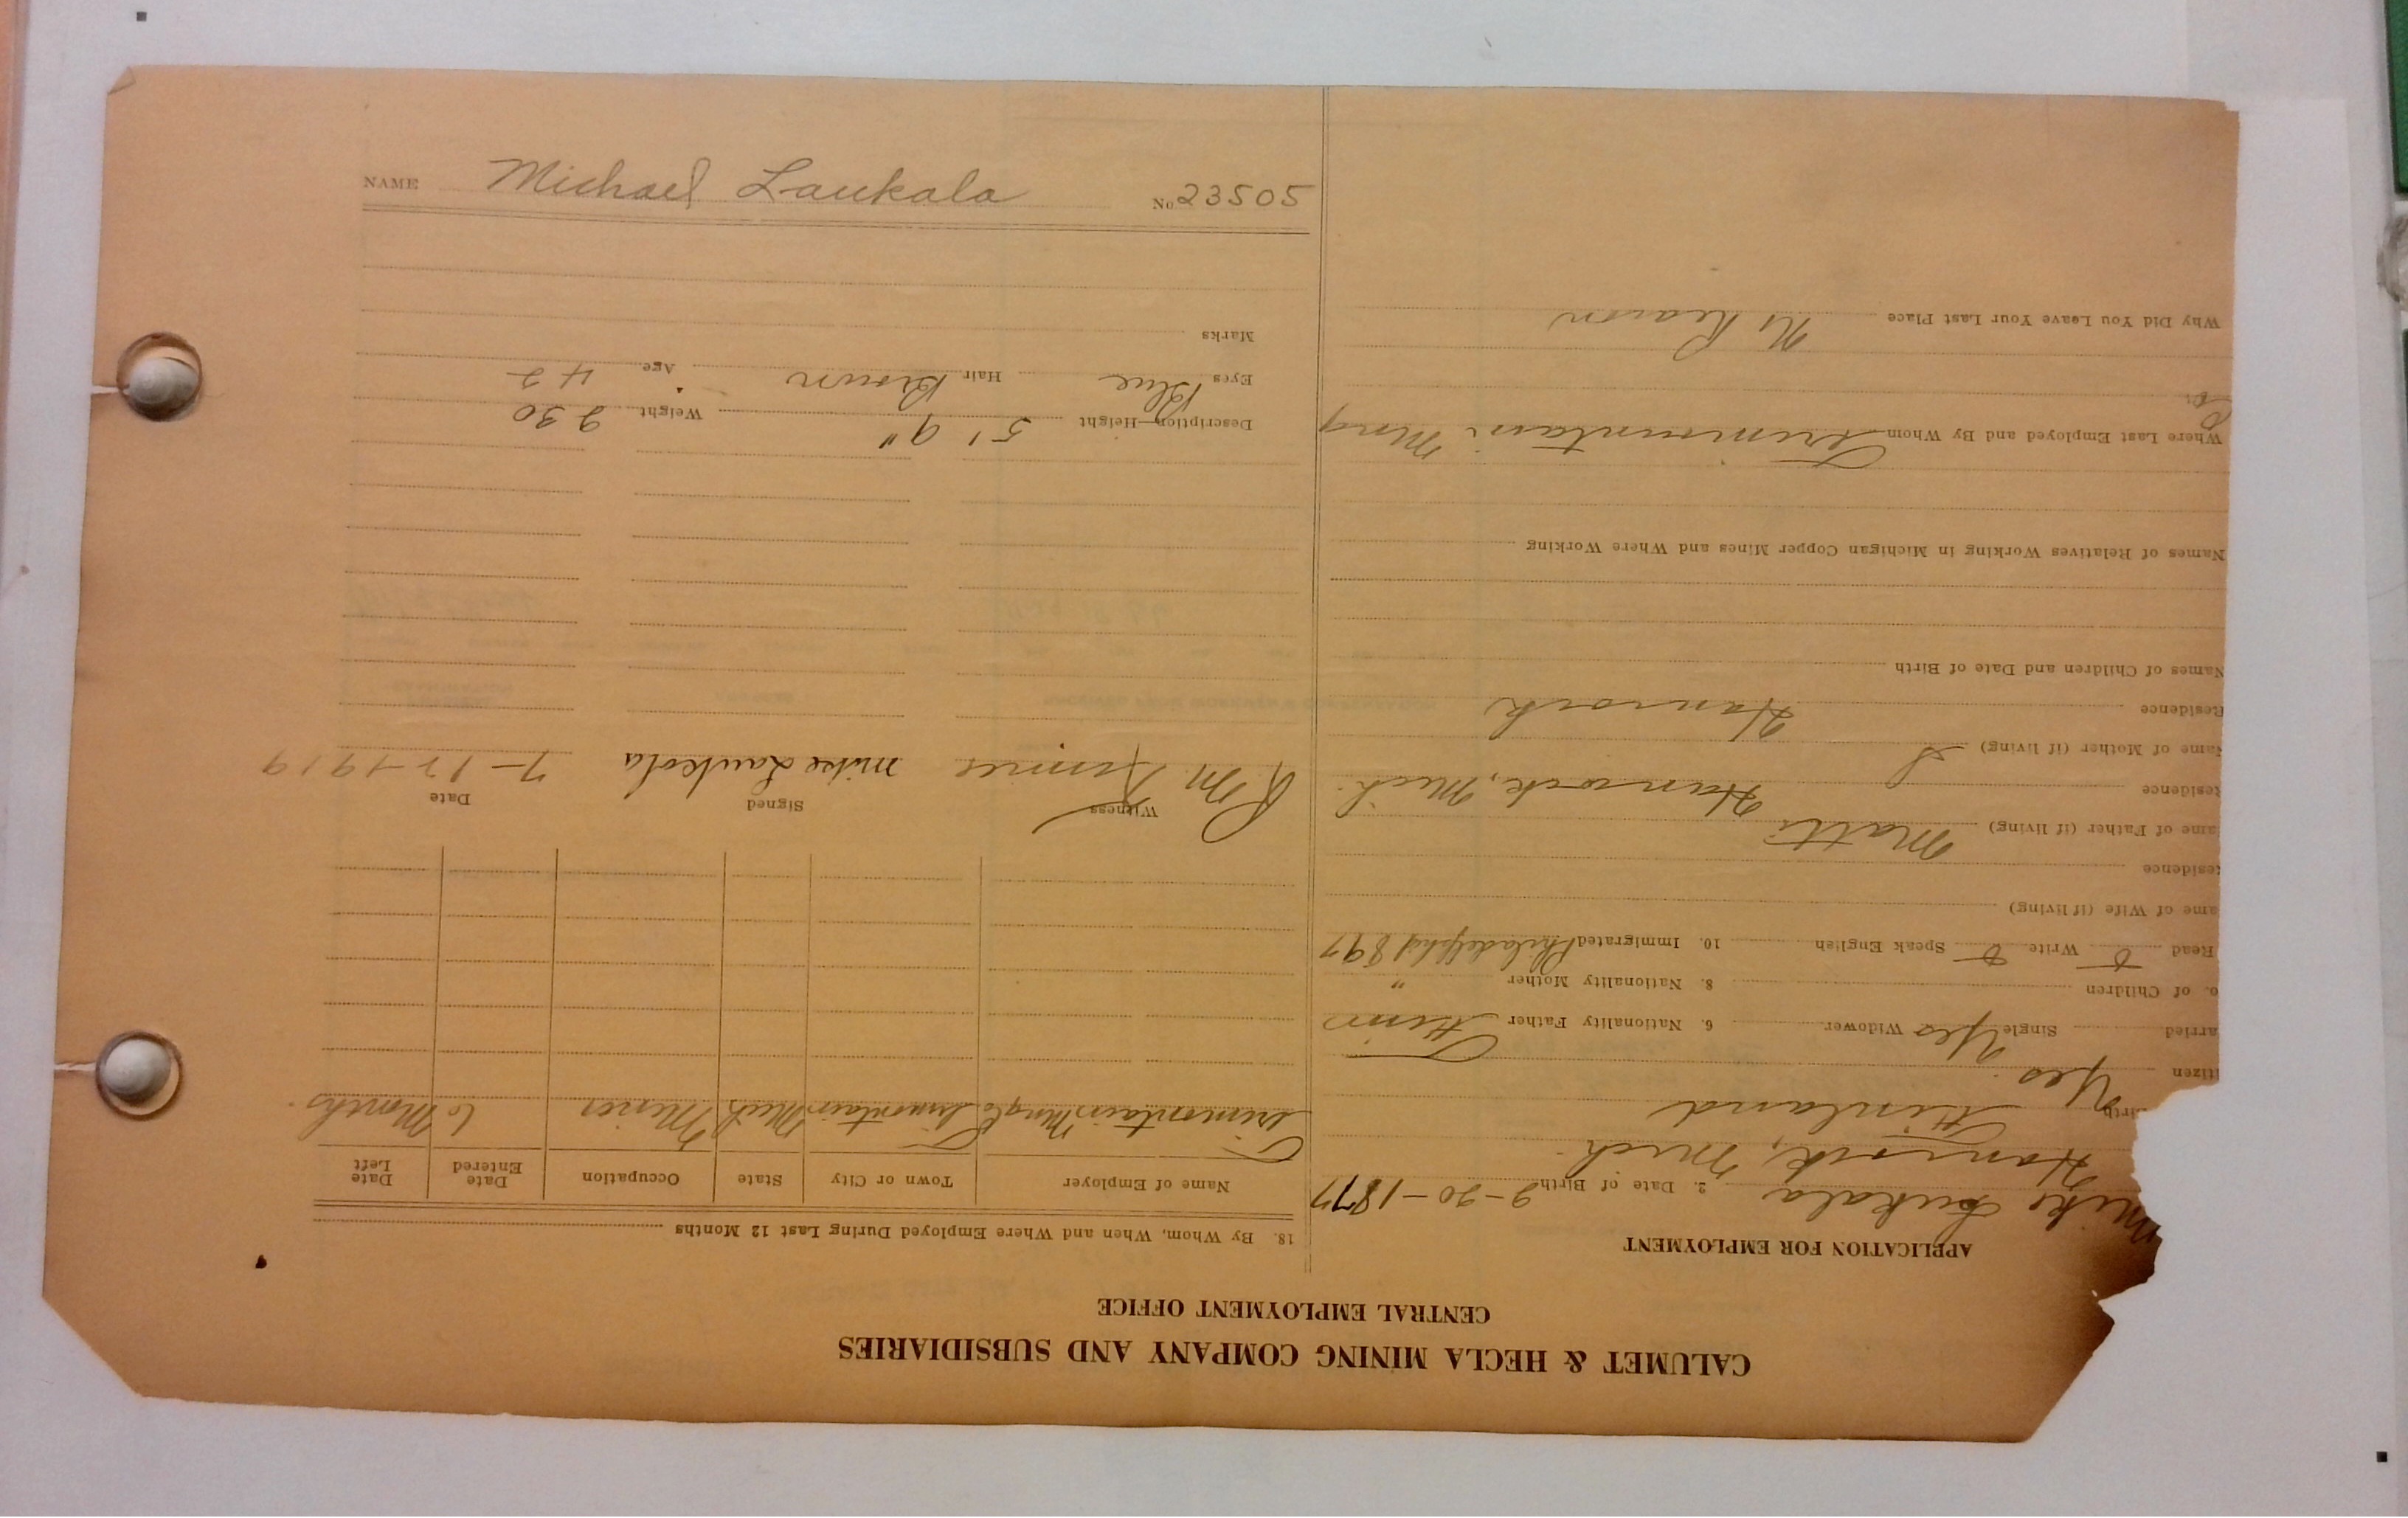 CALUMET & HECLA MINING COMPANY AND SUBSIDIARIES
CENTRAL EMPLOYMENT OFFICE
APPLICATION FOR EMPLOYMENT
Mike Loukala 2. Date of Birth 9-20-1877
Hancock, Mich.
Birth Finland
itizen Yes.
arried Single Yes Widower 6. Nationality Father Finn
o. of Children 8. Nationality Mother "
Read Write Speak English 10. Immigrated Philadelphia 1897
ame of Wife (if living)
esidence
ame of Father (if living) Matti
esidence Hancock, Mich.
ame of Mother (if living)
Residence Hancock
Names of Children and Date of Birth
Names of Relatives Working in Michigan Copper Mines and Where Working
Where Last Employed and By Whom Trimountain Mng
Co.
Why Did You Leave Your Last Place No Reason
18. By Whom, When and Where Employed During Last 12 Months
Name of Employer Town or City State Occupation Date Entered Date Left
Trimountain Mng Co Trimountain Mich Miner 6 Months.
Witness Signed Date
R M Mike Laukola 7-17-1919
Description—Height 5' 9" Weight 230
Eyes Blue Hair Brown Age 42
Marks
NAME Michael Laukala No 23505